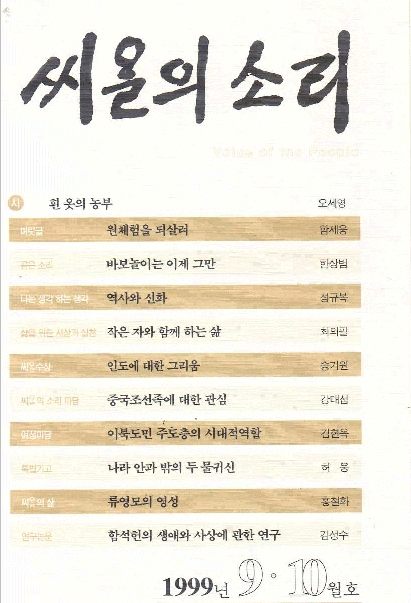 씨올의 소리
시 흰 옷의 농부 오세영
머릿글 원체험을 되살려 함세웅
곧은 소리 바보놀이는 이제 그만 한상범
나는 생각 하는 생각 역사와 신화 정규복
삶을 위한 사상과 실천 작은 자와 함께 하는 삶 최의팔
씨올수상 인도에 대한 그리움 송기원
씨올의 소리 마당 중국조선족에 대한 관심 강대섭
여성마당 이북도민 주도층의 시대적역할 김현옥
특별기고 나라 안과 밖의 두 물귀신 허웅
씨올의 삶 류영모의 영성 홍철화
연구논문 함석헌의 생애와 사상에 관한 연구 김성수
1999년 9·10월호